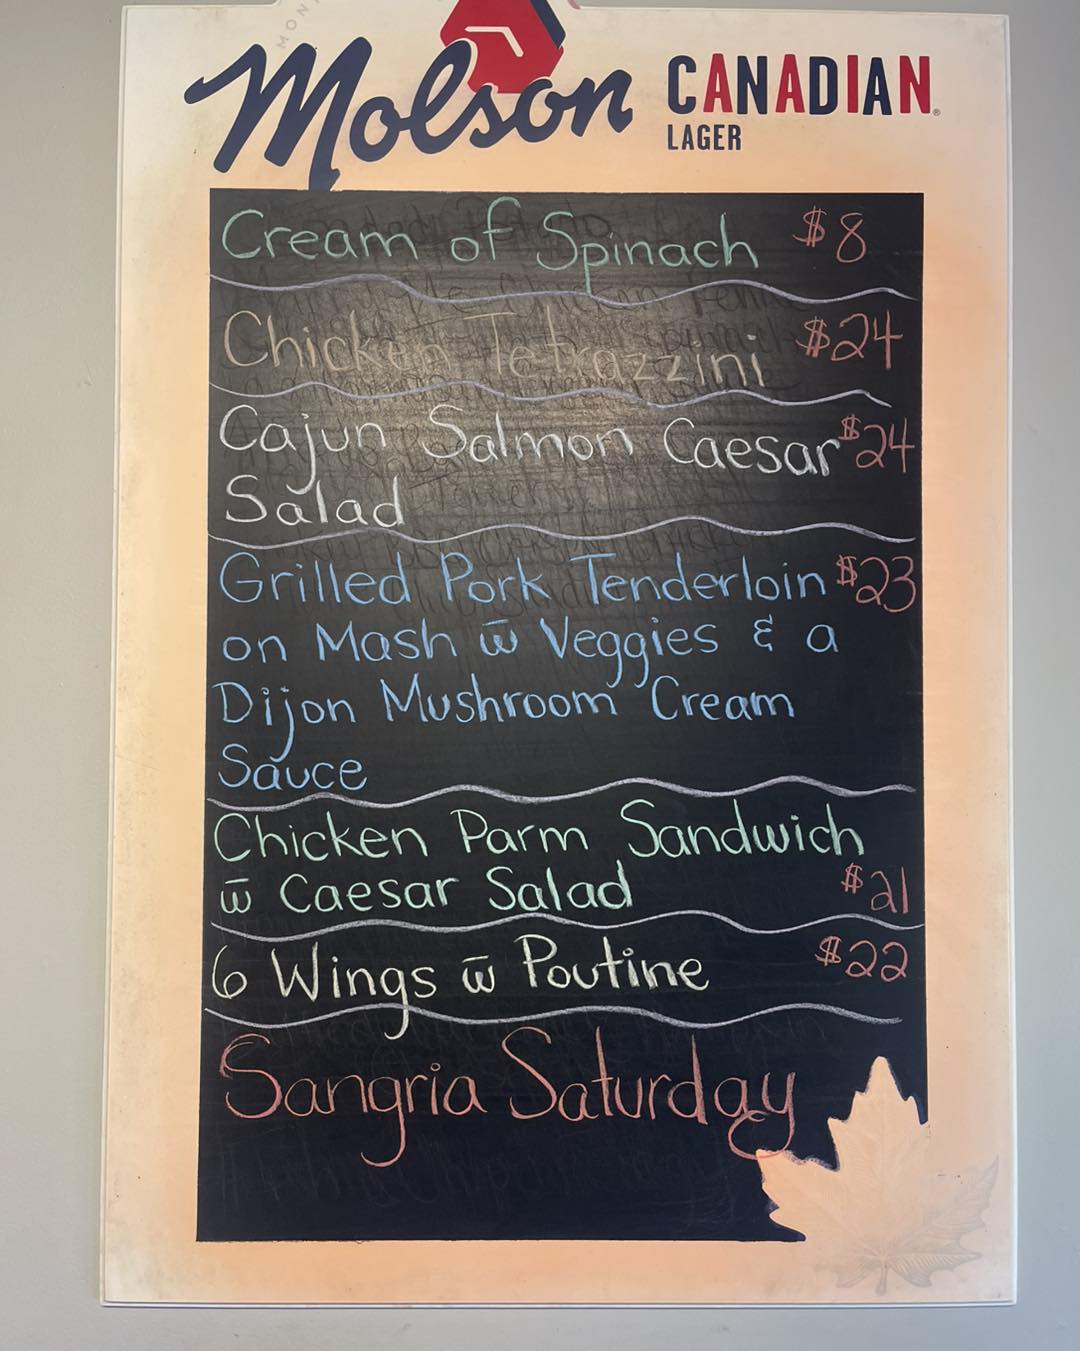 Molson CANADIAN
LAGER
Cream of Spinach $8
Chicken Tetrazzini $24
Cajun Salmon Caesar $24
Salad
Grilled Pork Tenderloin $23
on Mash w̅ Veggies & a
Dijon Mushroom Cream
Sauce
Chicken Parm Sandwich
w̅ Caesar Salad $21
6 Wings w̅ Poutine $22
Sangria Saturday